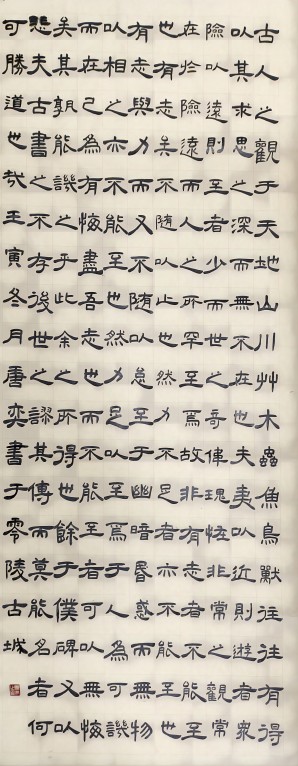 古人之觀于天地山川艸木蟲魚鳥獸往往有得
以其求思之深而無不在也夫夷以近則遊者眾
險以遠則至者少而世之奇偉瑰怪非常之觀常
在於險遠而人之所罕至焉故非有志者不能至
也有志矣不隨以止也然力不足者亦不能至也
有志與力而又不隨以怠至于幽暗昏惑而無物
以相之亦不能至也然力足以至焉于人為可譏
而在己為有悔盡吾志也而不能至者可以無悔
矣其孰能譏之乎此余之所得也餘于僕碑又以
悲夫古書之不存後世之謬其傳而莫能名者何
可勝道也哉壬寅冬月唐奕書于零陵古城